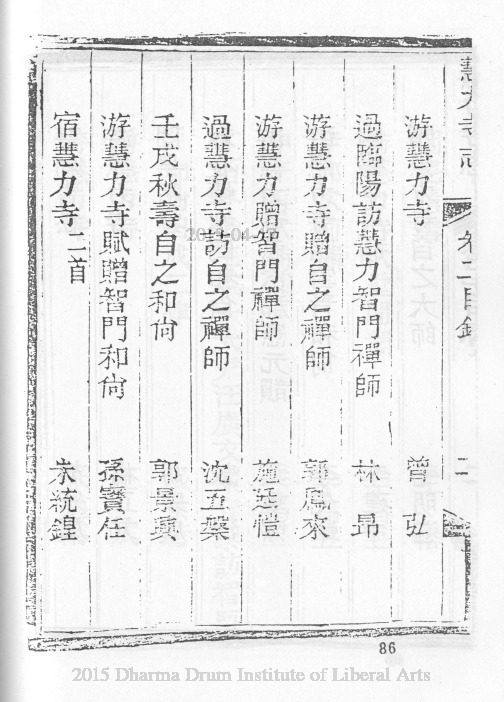 慧力寺志 卷二目錄 二
游慧力寺 曾弘
過臨陽訪慧力智門禪師 林昻
游慧力寺贈自之禪師 郭鳳來
游慧力贈智門禪師 施廷愷
過慧力寺訪自之禪師 沈五
壬戌秋壽自之和尙
游慧力寺賦贈智門和尙 孫寶任
宿慧力寺二首 統鍠
86
2015 Dharma Drum Institute of Liberal Arts